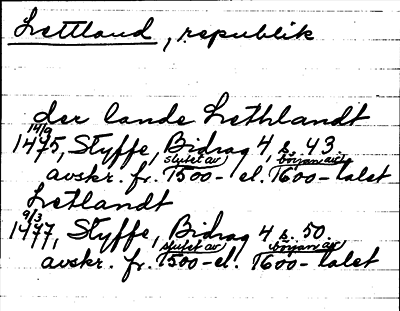 Lettland, republik
der lande Lethlandt
14/9
1475, Styffe, Bidrag 4, s. 43.
slutet av början av
avskr. fr. 1500- el. 1600-talet
Letlandt
9/3
1477, Styffe, Bidrag 4 s. 50.
slutet av början av
avskr. fr. 1500-el. 1600-talet